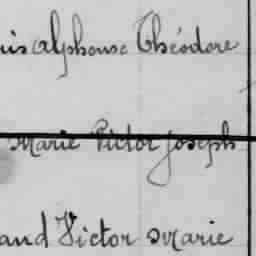 uis Alphonse Théodore
Marie Victor Joseph
and Victor Marie